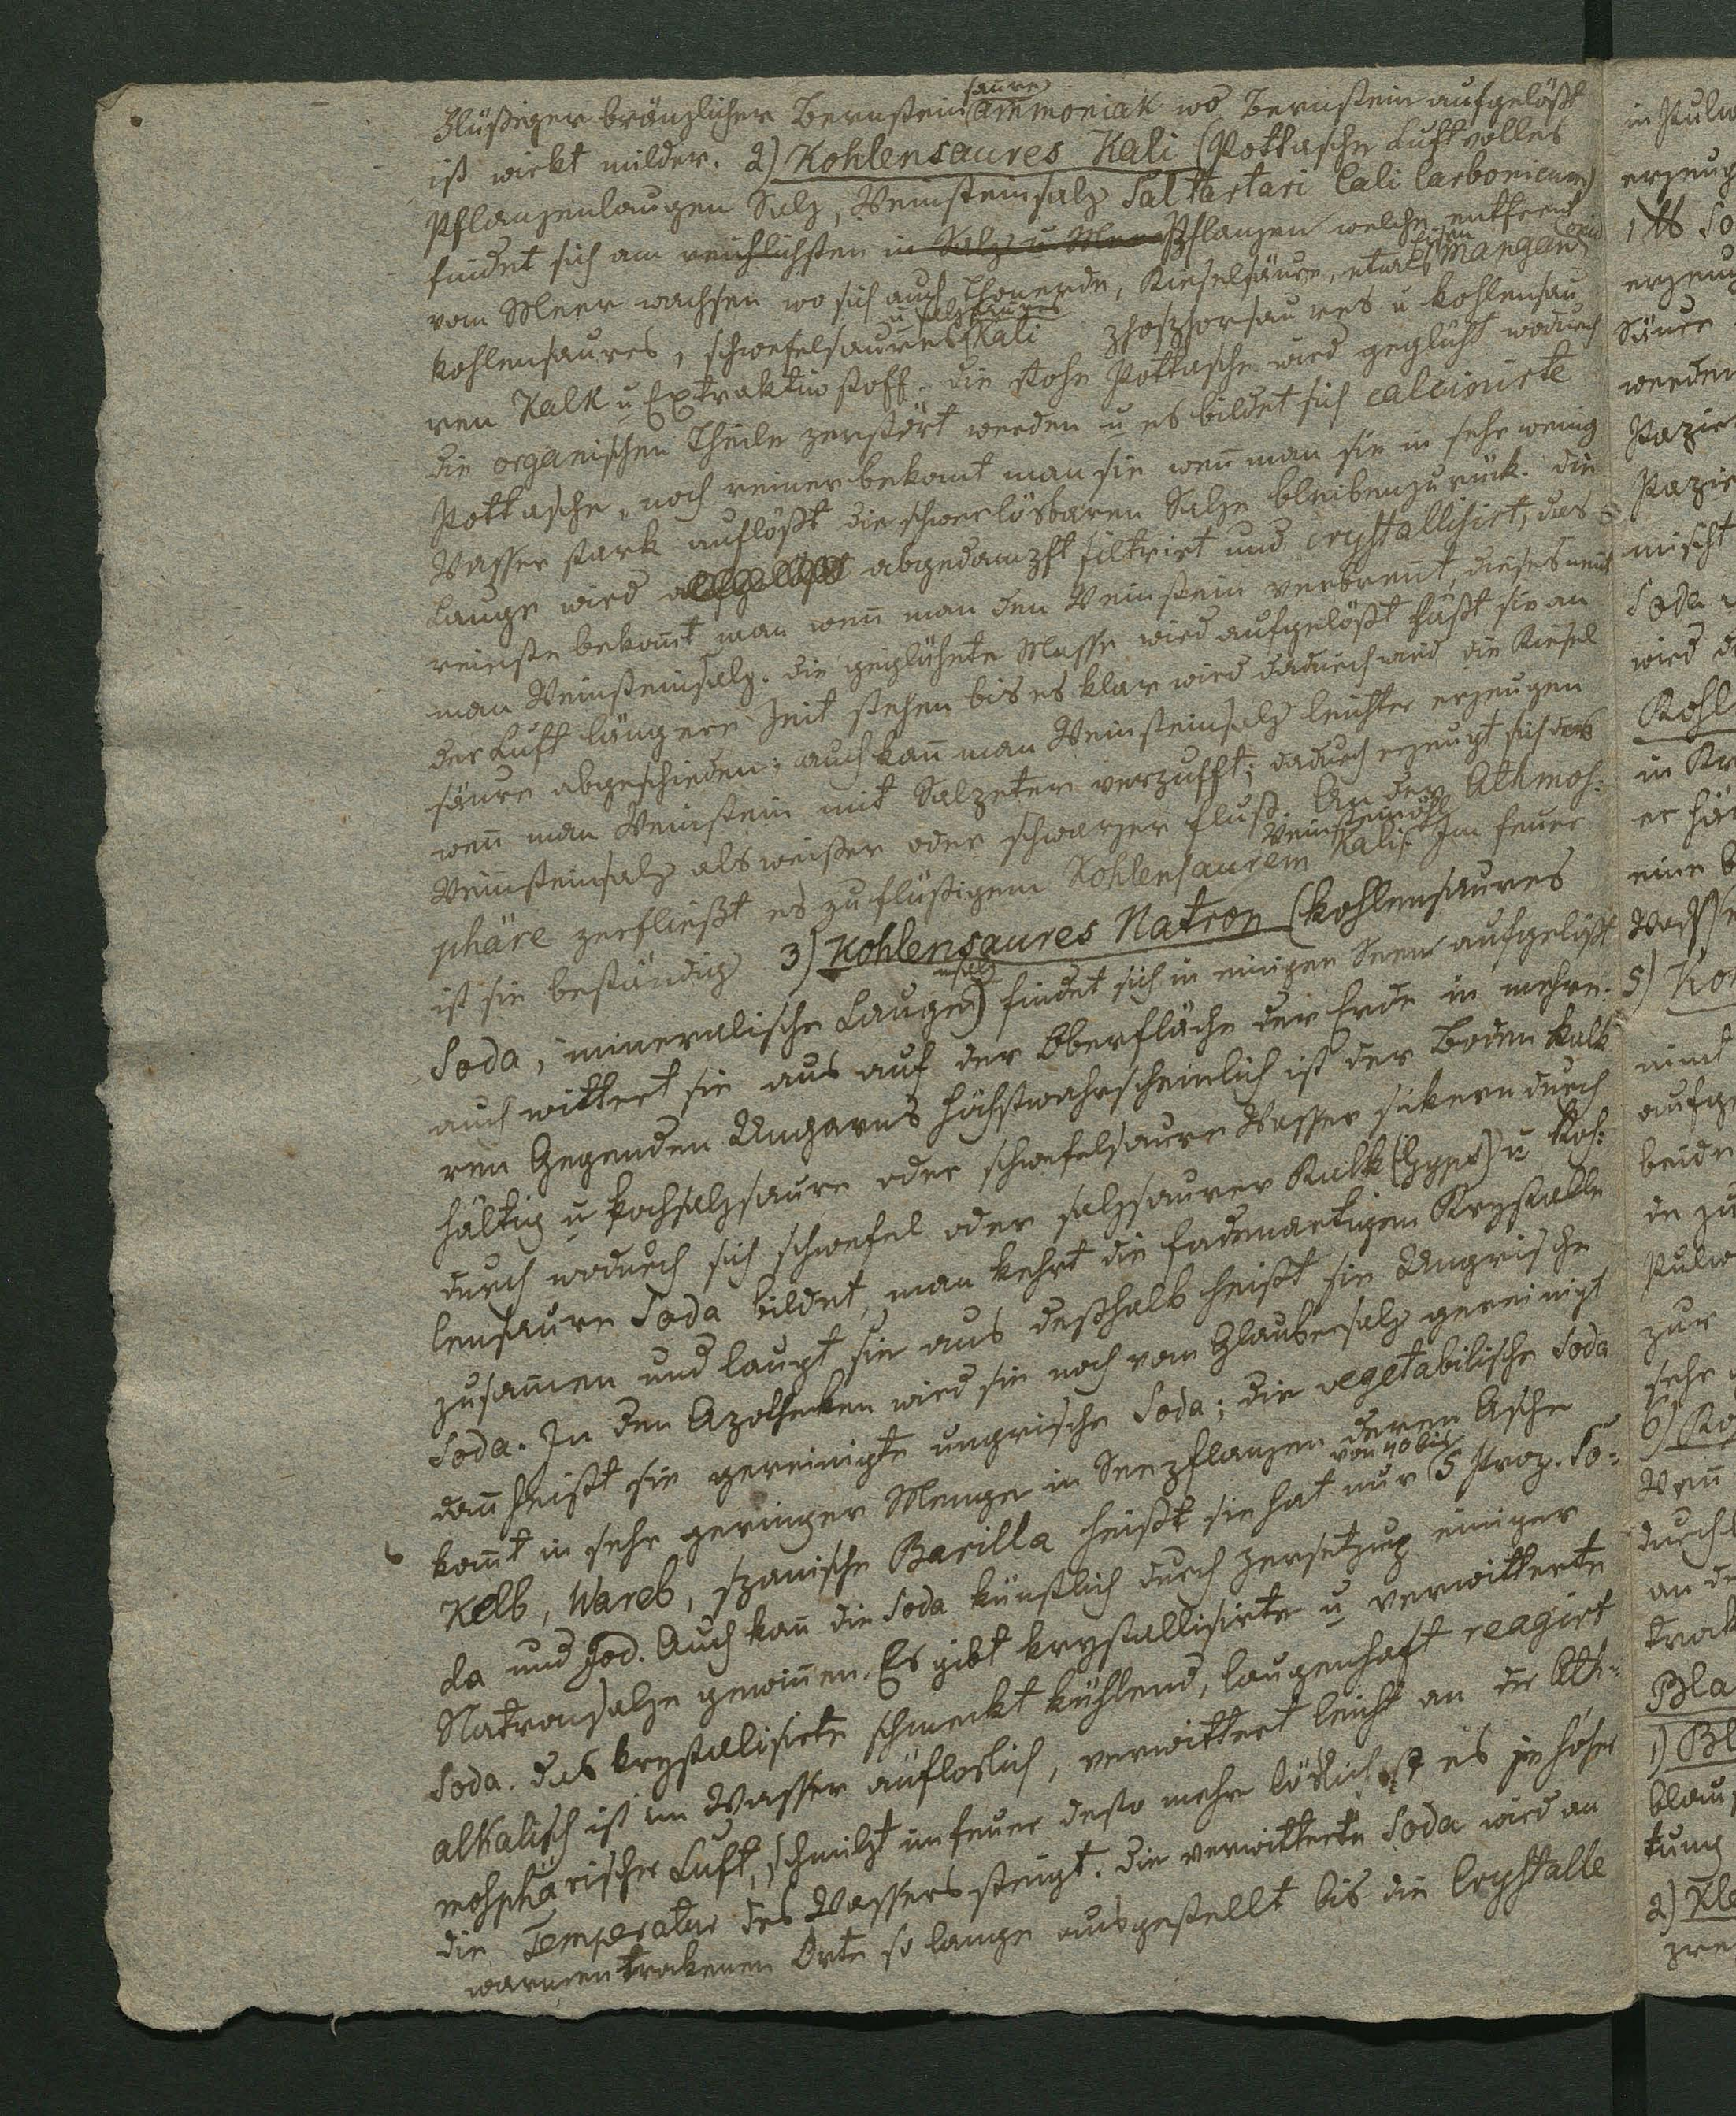 Flüßiger bränzlicher Bernstein saure ammoniak wo Bernstein aufgelößt
ist wirkt milder. 2) Kohlensaures Kali (Pottasche Luftvolles
Pflanzenlaugen Salz, Weinsteinsalz Sal tartari Cali Carbonicum)
findet sich am reichlichsten in Salz u Meer Pflanzen welche entfernt
vom Meer wachsen wo sich auch Thonerde, Kieselsäure, etwas Eisen Mangan oxid
kohlensaures, schwefelsaures u salzsaures Kali phosphorsaures u kohlensau
ren Kalk u Extraktivstoff. die rohe Pottasche wird geglüht wodurch
die organischen Theile zerstört werden u es bildet sich calcinirte
Pottasche, noch reiner bekomt man sie wen̄ man sie in sehr wenig
Wasser stark auflößt die schwerlösbaren Salze bleiben zurük. die
Lauge wird aufgelößt abgedampft filtrirt und crystallisirt, das
reinste bekom̄t man wen̄ man den Weinstein verbren̄t, dieses nen̄t
man Weinsteinsalz. die geglühete Masse wird aufgelößt läßt sie an
der Luft längere Zeit stehen bis es klar wird dadurch wird die Kiesel
säure abgeschieden; auch kan̄ man Weinsteinsalz leichter erzeugen
wen̄ man Weinstein mit Salpeter verpufft; dadurch erzeugt sich das
Weinsteinsalz als weißer oder schwarzer fluß. An der Athmos:
phäre zerfließt es zu flüßigem Kohlensaurem Weinsteinöhl Kali. Im feuer
ist sie beständig 3) Kohlensaures Natron (kohlensaures
Soda, mineralische Laugensalz) findet sich in einigen Seen aufgelößt
auch wittert sie aus auf der Oberfläche der Erde in mehre:
ren Gegenden Ungarns höchstwahrscheinlich ist der Boden kalk
hältig u kochsalzsaure oder schwefelsaure Wasser sikern durch
durch wodurch sich schwefel oder salzsaurer Kalk (Gyps) u koh:
lensaure Soda bildet, man kehrt die fadenartigen Krystalle
zusam̄en und laugt sie aus deßhalb heißt sie Ungrische
Soda. In den Apotheken wird sie noch vom Glaubersalz gereinigt
dan̄ heißt sie gereinigte ungrische Soda; die vegetabilische Soda
kom̄t in sehr geringer Menge in Seepflanzen deren Asche
Kelb, Wareb, spanische Barilla heißt sie hat nur von 40 bis 5 Proz. So:
da und Jod. Auch kan̄ die Soda künstlich durch zersetzug einiger
Natronsalze gewin̄en. Es gibt krystallisirte u verwitterte
Soda. das krystalisirte schmeckt kühlend, laugenhaft reagirt
alkalisch ist im Wasser auflöslich, verwittert leicht an der Ath:
mosphärischer Luft, schmilzt im feuer desto mehr löslich ist es je höher
die Temperatur des Wassers steigt. die verwitterte Soda wird an
warmen trokenen Orte so lange ausgestellt bis die Crystalle